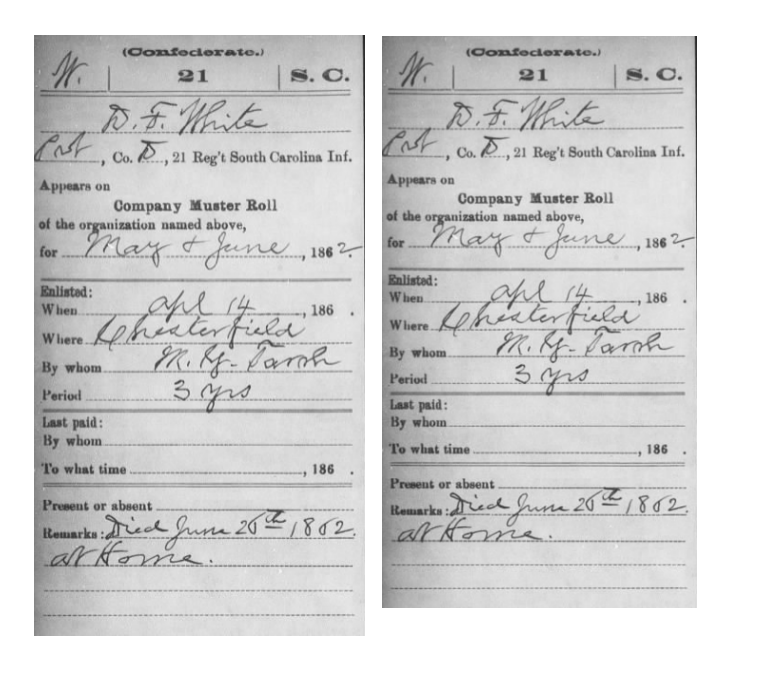 (Confederate.)
W. 21 S. C.
D. F. White
Pvt, Co. D, 21 Reg't South Carolina Inf.
Appears on
Company Muster Roll
of the organization named above,
for May & June, 1862.
Enlisted:
When Apl 14, 186 .
Where Chesterfield
By whom M. G. Tarrh
Period 3 yrs
Last paid:
By whom
To what time, 186 .
Present or absent
Remarks: Died June 26th 1862.
at Home.
(Confederate.)
W. 21 S. C.
D. F. White
Pvt, Co. D, 21 Reg't South Carolina Inf.
Appears on
Company Muster Roll
of the organization named above,
for May & June, 1862.
Enlisted:
When Apl 14, 186 .
Where Chesterfield
By whom M. G. Tarrh
Period 3 yrs
Last paid:
By whom
To what time, 186 .
Present or absent
Remarks: Died June 26th 1862.
at Home.